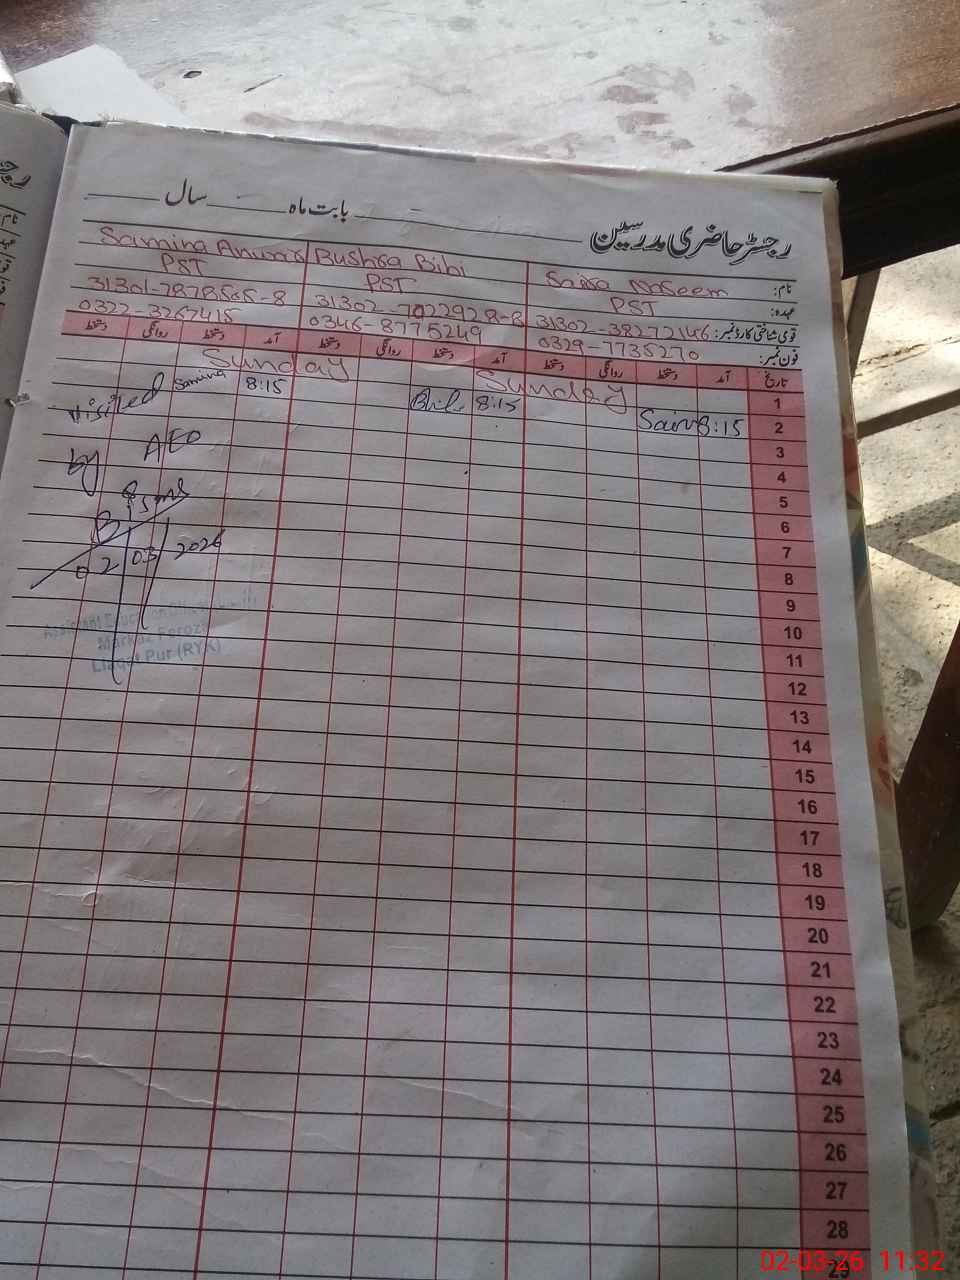 رجسٹر حاضری مدرسین بابت ماہ سال
نام: Saira Naseem Bushra Bibi Samina
عہدہ: PST PST PST
قومی شناختی کارڈ نمبر: 31302-38272146 31302-7022928-8
فون نمبر: 0329-7735270 0346-8775249 0322-3267415
تاریخ آمد دستخط روانگی دستخط آمد دستخط روانگی دستخط آمد دستخط روانگی دستخط
1 Sunday Sunday
2 8:15 Saira 8:15 8:15 Samina
3
4
5
6
7
8
9
10
11
12
13
14
15
16
17
18
19
20
21
22
23
24
25
26
27
28
29
visited
by AEO
02/03/2026
Assistant Education
Markaz Feroza
Liaqat Pur (RYK)
02-03-26 11:32